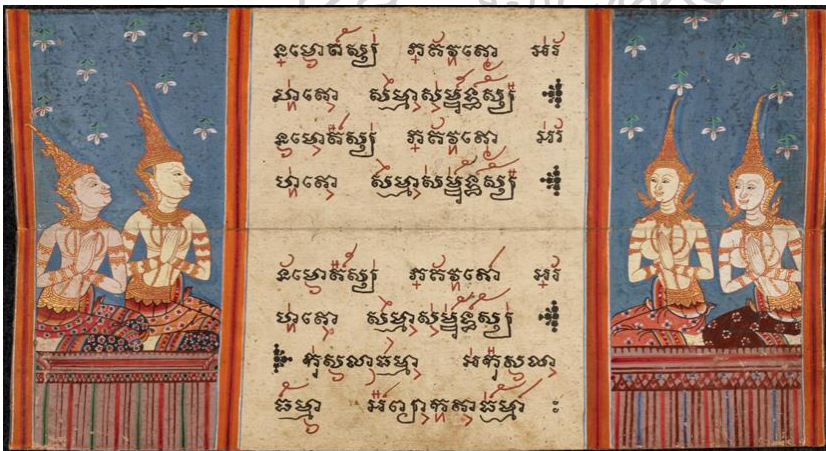 នមោតស្ស ភគវតោ អរ
ហតោ សម្មាសម្ពុទ្ធស្ស
នមោតស្ស ភគវតោ អរ
ហតោ សម្មាសម្ពុទ្ធស្ស
នមោតស្ស ភគវតោ អរ
ហតោ សម្មាសម្ពុទ្ធស្ស
កុសលាធម្មា អកុសលា
ធម្មា អព្យាកតាធម្មា ះ